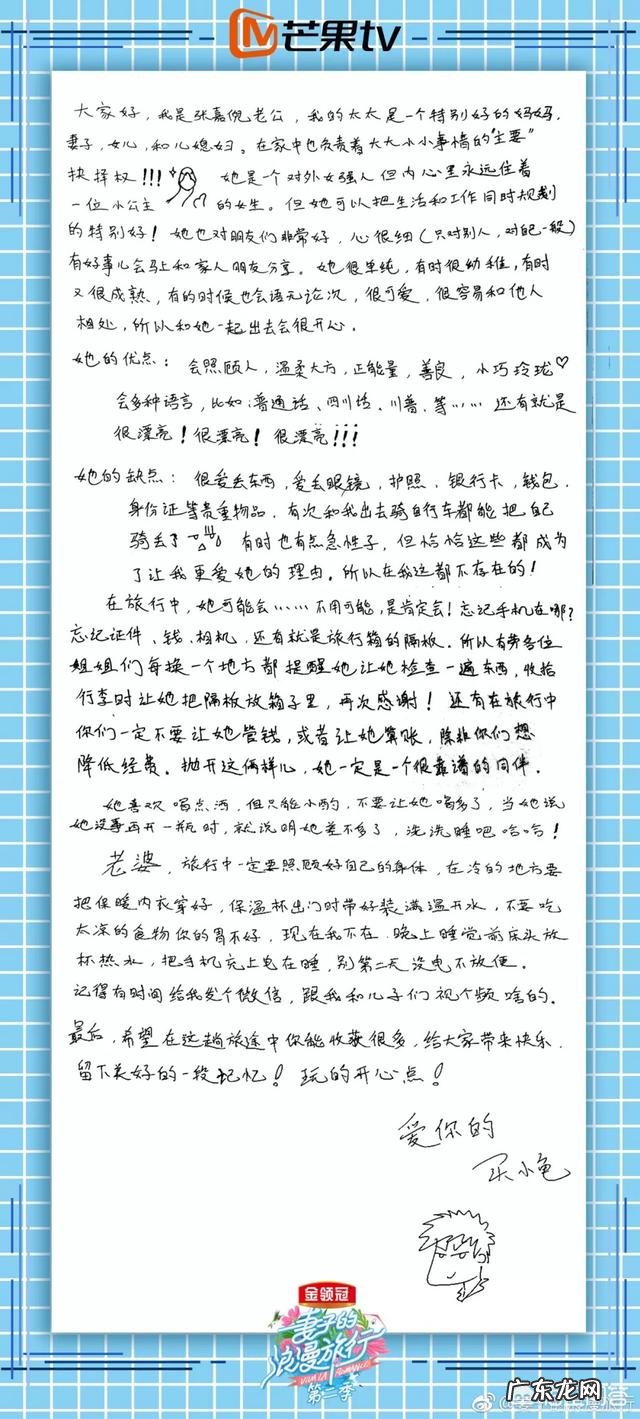 芒果tv
大家好，我是张嘉倪老公，我的太太是一个特别好的妈妈，
妻子，女儿，和儿媳妇。在家中也负责着大大小小事情的"主要"
抉择权!!! 她是一个对外女强人但内心里永远住着
一位小公主 的女生。但她可以把生活和工作同时规划
的特别好！她也对朋友们非常好，心很细（只对别人，对自己一般）
有好事儿会马上和家人朋友分享。她很单纯，有时很幼稚，有时
又很成熟，有的时候也会语无论次，很可爱，很容易和他人
相处，所以和她一起出去会很开心。
她的优点：会照顾人，温柔大方，正能量，善良，小巧玲珑♡
会多种语言，比如：普通话、四川话、川普、等…… 还有就是
很漂亮！很漂亮！很漂亮!!!
她的缺点：很爱丢东西，爱丢眼镜，护照、银行卡，钱包、
身份证等贵重物品，有次和我出去骑自行车都能把自己
骑丢了 有时也有点急性子，但恰恰这些都成为
了让我更爱她的理由。所以在我这都不存在的！
在旅行中，她可能会……不用可能，是肯定会！忘记手机在哪？
忘记证件、钱、相机，还有就是旅行箱的隔板。所以有劳各位
姐姐们每换一个地方都提醒她让她检查一遍东西，收拾
行李时让她把隔板放箱子里，再次感谢！还有在旅行中
你们一定不要让她管钱，或者让她算账，除非你们想
降低经费。抛开这俩样儿，她一定是一个很靠谱的同伴。
她喜欢喝点酒，但只能小酌，不要让她喝多了，当她说
她没事再开一瓶时，就说明她差不多了，洗洗睡吧哈哈！
老婆，旅行中一定要照顾好自己的身体，在冷的地方要
把保暖内衣穿好，保温杯出门时带好装满温开水，不要吃
太凉的食物你的胃不好，现在我不在 晚上睡觉前床头放
杯热水，把手机充上电在睡，别第二天没电不放便。
记得有时间给我发个微信，跟我和儿子们视个频啥的。
最后，希望在这趟旅途中你能收获很多，给大家带来快乐，
留下美好的一段记忆！玩的开心点！
爱你的
买小龟
金领冠
妻子的
浪漫旅行
VIVA LA ROMANCE
第二季
广东龙网